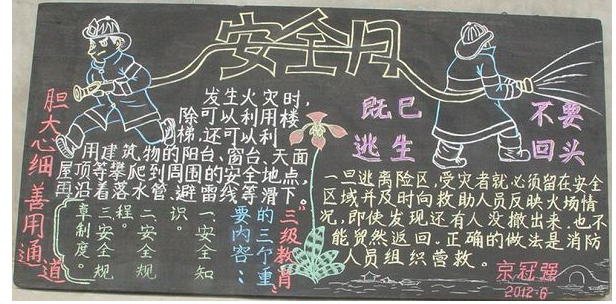 安全月
胆大心细 善用通道
发生火灾时,
除可以利用楼
梯,还可以利
用建筑物的阳台、窗台、天面
屋顶等攀爬到周围的安全地点,
再沿着落水管、避雷线等滑下。
既已
逃生
不要
回头
一旦逃离险区,受灾者就必须留在安全
区域并及时向救助人员反映火场情
况,即使发现还有人没撤出来,也不
能贸然返回。正确的做法是消防
人员组织营救。
“三级教育”
的三个重
要内容:
一、安全知
识。
二、安全规
程。
三、安全规
章制度。
京冠强
2012·6